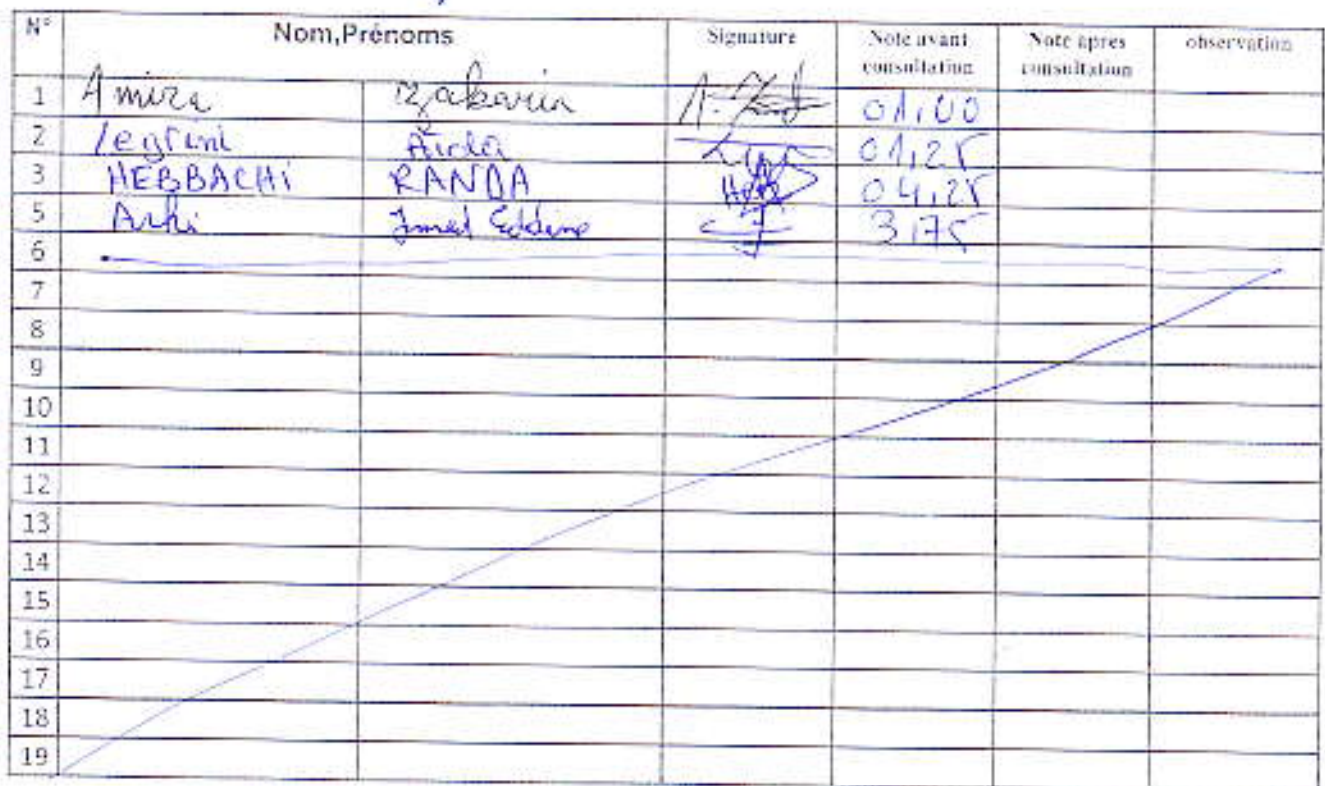 N° Nom,Prénoms Signature Note avant consultation Note apres consultation observation
1 Amira Zakaria 01,00
2 Zegrini Aida 01,25
3 HEBBACHI RANDA 04,25
5 Imed Eddine 3,75
6
7
8
9
10
11
12
13
14
15
16
17
18
19